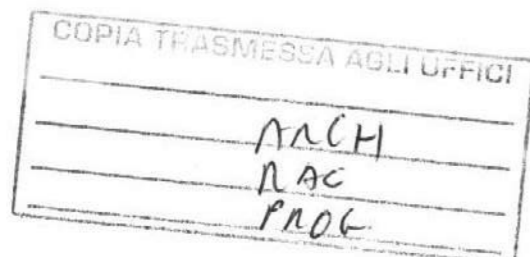 COPIA TRASMESSA AGLI UFFICI
ARCH
RAG
PROG